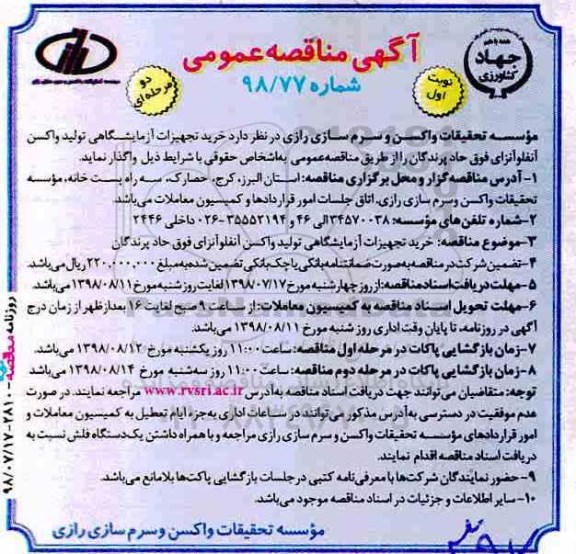 آگهی مناقصه عمومی
شماره ۹۸/۷۷
دو مرحله‌ای
نوبت اول
همه با هم
جهاد کشاورزی
مؤسسه تحقیقات واکسن و سرم سازی رازی در نظر دارد خرید تجهیزات آزمایشگاهی تولید واکسن
آنفلوآنزای فوق حاد پرندگان را از طریق مناقصه عمومی به اشخاص حقوقی با شرایط ذیل واگذار نماید.
۱- آدرس مناقصه گزار و محل برگزاری مناقصه: استان البرز، کرج، حصارک، سه راه پست خانه، مؤسسه
تحقیقات واکسن و سرم سازی رازی، اتاق جلسات امور قراردادها و کمیسیون معاملات می‌باشد.
۲-شماره تلفن‌های مؤسسه: ۳۴۵۷۰۰۳۸ الی ۴۶ و ۳۵۵۵۲۱۹۴-۰۲۶ داخلی ۲۴۴۶
۳-موضوع مناقصه: خرید تجهیزات آزمایشگاهی تولید واکسن آنفلوآنزای فوق حاد پرندگان
۴-تضمین شرکت در مناقصه به‌صورت ضمانتنامه بانکی یا چک بانکی تضمین شده به مبلغ ۲۲۰,۰۰۰,۰۰۰ ریال می‌باشد.
۵-مهلت دریافت اسناد مناقصه: از روز چهارشنبه مورخ ۱۳۹۸/۰۷/۱۷ لغایت روز شنبه مورخ ۱۳۹۸/۰۸/۱۱ می‌باشد.
۶-مهلت تحویل اسناد مناقصه به کمیسیون معاملات: از ساعت ۹ صبح لغایت ۱۶ بعدازظهر از زمان درج
آگهی در روزنامه، تا پایان وقت اداری روز شنبه مورخ ۱۳۹۸/۰۸/۱۱ می‌باشد.
۷-زمان بازگشایی پاکات در مرحله اول مناقصه: ساعت ۱۱:۰۰ روز یکشنبه مورخ ۱۳۹۸/۰۸/۱۲ می‌باشد.
۸-زمان بازگشایی پاکات در مرحله دوم مناقصه: ساعت ۱۱:۰۰ روز سه‌شنبه مورخ ۱۳۹۸/۰۸/۱۴ می‌باشد
توجه: متقاضیان می‌توانند جهت دریافت اسناد مناقصه به آدرس www.rvsri.ac.ir مراجعه نمایند. در صورت
عدم موفقیت در دسترسی به آدرس مذکور می‌توانند در ساعات اداری به‌جزء ایام تعطیل به کمیسیون معاملات و
امور قراردادهای مؤسسه تحقیقات واکسن و سرم سازی رازی مراجعه و با همراه داشتن یک دستگاه فلش نسبت به
دریافت اسناد مناقصه اقدام نمایند.
۹-حضور نمایندگان شرکت‌ها با معرفی‌نامه کتبی در جلسات بازگشایی پاکت‌ها بلامانع می‌باشد.
۱۰-سایر اطلاعات و جزئیات در اسناد مناقصه موجود می‌باشد.
مؤسسه تحقیقات واکسن و سرم سازی رازی
روزنامه مناقصه ۲۸۱۰-۹۸/۰۷/۱۷